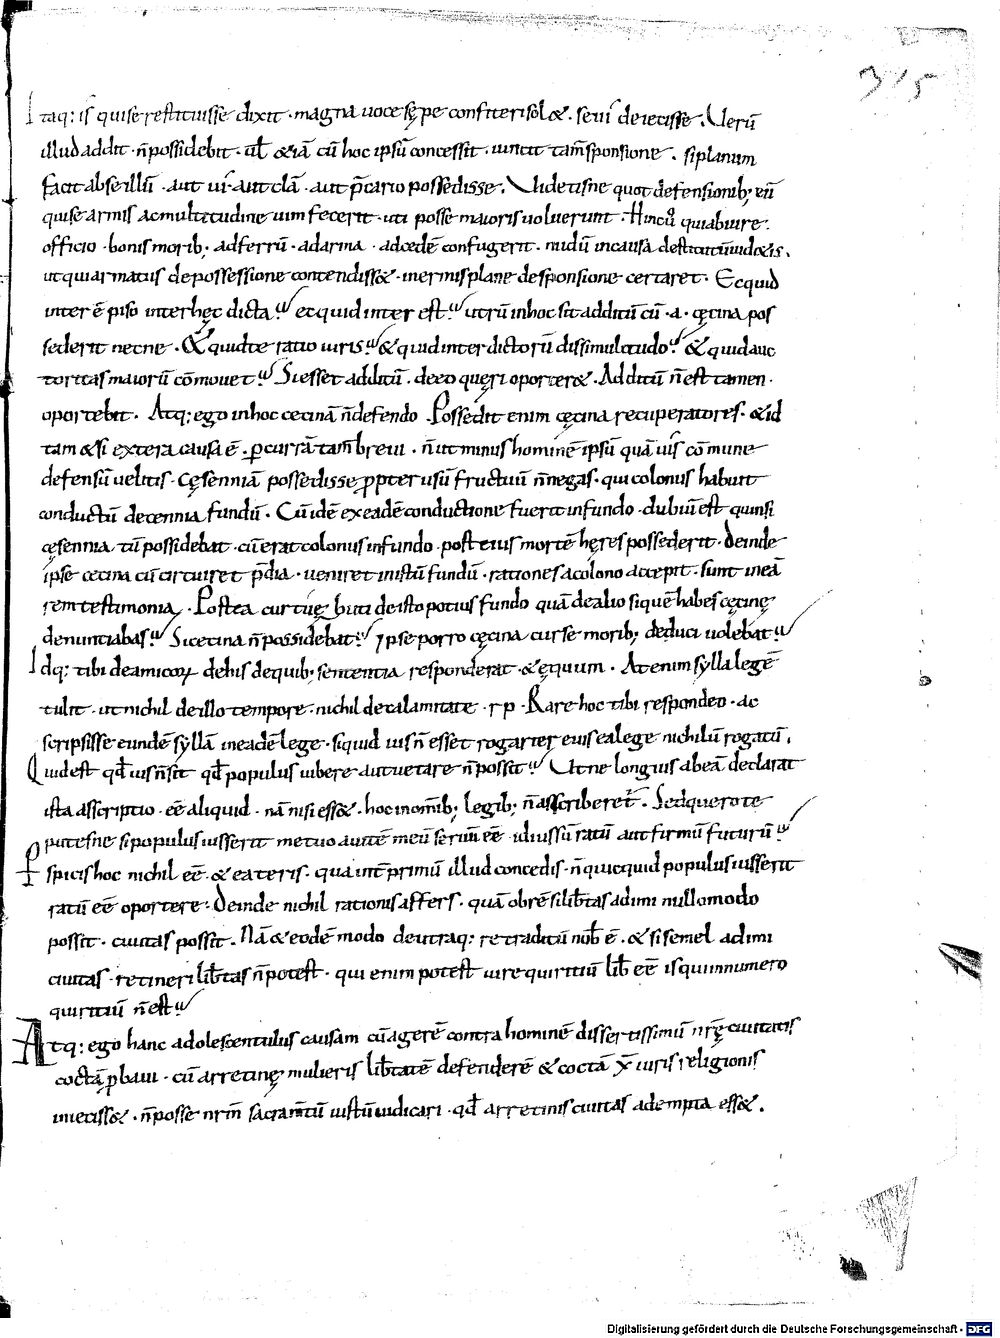 315
Itaq; is quise restituisse dixit · magna uoce sępe confiteri sol&. se ui deiecisse. Uerū
illud addit · n̄ possidebit · ul̄ &iā cū hoc ipsū concessit · uincit tam̄ sponsione. si planum
facit abse illū · aut ui · aut clā · aut p̄cario possedisse. Uidetisne quot defensionib; eū
quise armis ac multitudine uim fecerit · uti posse maiores uoluerunt · Hincu quiabiure ·
officio · bonis morib; ad ferrū · ad arma · ad cędē confugerit · nudū in causa destitutū uid&is.
ut qui armatus de possessione contendiss& · inermis plane de sponsione certaret · Ecquid
inter ē piso inter hęc dicta · ecquid inter est · utrū in hoc sit additū cū · a · cęcina pos
sederit necne · Ecquid te ratio iuris · & quid interdictorū dissimulitudo · & quid auc
toritas maiorū cōmouet · Si esset additū . de eo quęri oporter& · Additū n̄ est tamen ·
oportebit · Atq; ego in hoc cecinā n̄ defendo Possedit enim cęcina recuperatores · & id
tam &si extera causa ē · p̱currā tam̄ breui · n̄ ut minus hominē ipsū quā ius cōmune
defensū uelitis · Cęsenniā possedisse p̱pter usū fructuū n̄ negas · qui colonus habuit
conductū de cennia fundū · Cū idē ex eadē conductione fuerit in fundo · dubiū est quin si
cęsennia tū possidebat · cū erat colonus in fundo · post eius mortē hęres possederit · Deinde
ipse cecina cū circuiret p̄dia · ueniret in istū fundū · rationes a colono accepit · sunt in eā
rem testimonia · Postea cur tu ębuti de isto potius fundo quā de alio siquē habes cęcinę
denuntiabas · Si cecina n̄ possidebat · Ipse porro cęcina cur se morib; deduci uolebat
Idq; tibi de amicorꝝ de his de quib; sententia responderat · & ęquum · At enim sylla legē
tulit · ut nichil de illo tempore · nichil de calamitate · r p · Rare hoc tibi respondeo · ac
scripsisse eundē syllā in eadē lege · siquid ius n̄ esset rogarier eius ea lege nichilū rogatū.
Quid est qd̄ ius n̄ sit qd̄ populus iubere aut uetare n̄ possit · Ut ne longius abeā declarat
ista asscriptio · eē aliquid · nā nisi ess& · hoc in omīb; legib; n̄ asscriberet · Sed quero te
putesne si populus iusserit me tuo aut tē meū seruū eē · id iussū ratū aut firmū futurū
p̱spicis hoc nichil eē · & ea ceteris · qua int̄ primū illud concedis · n̄ quicquid populus iusserit
ratū eē oportere · Deinde nichil rationis affers · quā obrē si lib̄tas adimi nullo modo
possit · ciuitas possit · Nā & eodē modo de utraq; re traditū nob̄ ē · & si semel adimi
ciuitas · retineri lib̄tas n̄ potest · qui enim potest iure quiritiū lib̄ eē is qui in numero
quiritiū n̄ est
Atq; ego hanc adolescentulus causam cū agerē contra hominē dissertissimū nr̄ę ciuitatis
coctā p̱baui · cū arretinę mulieris lib̄tatē defenderē & coctā x̄ iuris religionis
iniecisse& · n̄ posse nrm̄ sacram̄tū iustū iudicari · qd̄ arretinis ciuitas adempta ess&.
Digitalisierung gefördert durch die Deutsche Forschungsgemeinschaft - DFG